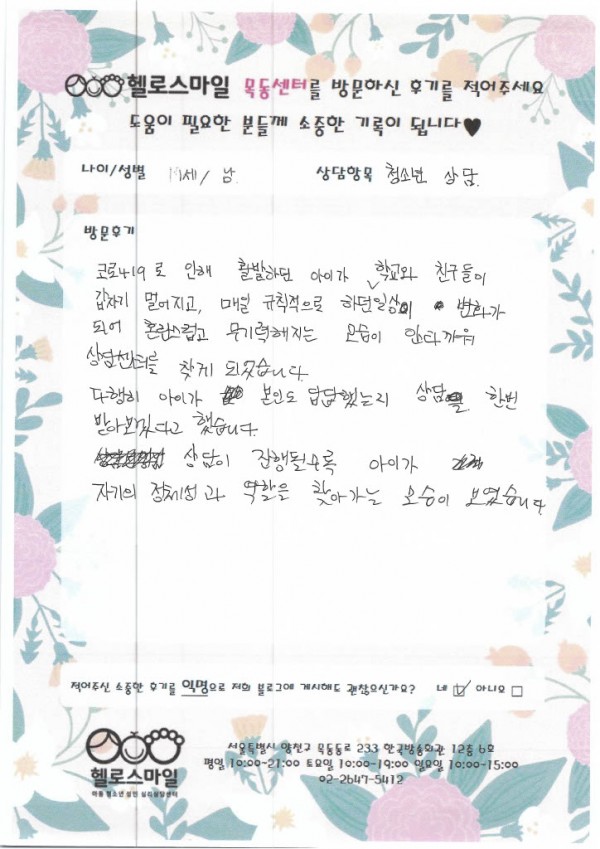 헬로스마일 목동센터를 방문하신 후기를 적어주세요
도움이 필요한 분들께 소중한 기록이 됩니다♥
나이/성별 19세/남 상담항목 청소년 상담
방문후기
코로나19로 인해 활발하던 아이가 학교와 친구들이
갑자기 멀어지고, 매일 규칙적으로 하던 일상이 변화가
되어 혼란스럽고 무기력해지는 모습이 안타까워
상담센터를 찾게 되었습니다
다행히 아이가 본인도 답답했는지 상담을 한번
받아보겠다고 했습니다.
상담이 진행될수록 아이가
자기의 정체성과 역할을 찾아가는 모습이 보였습니다
적어주신 소중한 후기를 익명으로 저희 블로그에 게시해도 괜찮으신가요? 네 ☑ 아니요 □
헬로스마일
아동 청소년 성인 심리상담센터
서울특별시 양천구 목동동로 233 한국방송회관 12층 6호
평일 10:00~21:00 토요일 10:00~19:00 일요일 10:00~15:00
02-2647-5412